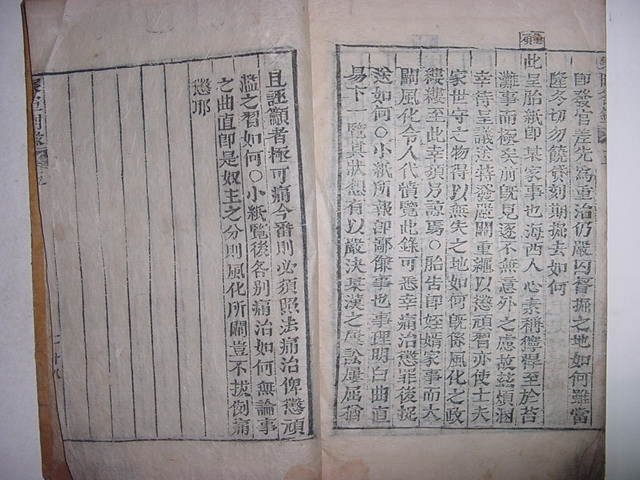 即發官差先爲重治仍嚴囚督掘之地如何雖當
隆冬切勿饒貸刻期掘去如何
此呈胎紙即某家事也海西人心素稱獰悍至於苔
灘事而極矣前旣見逐不無意外之慮故玆煩溷
幸待呈議送特發嚴關重繩以懲頑習亦使士夫
家世守之物得以無失之地如何旣係風化之政
縷縷至此幸須另諒焉○胎告即姪壻家事而大
關風化令人代憤覽此錄可悉幸痛治懲罪後捉
送如何○小紙所報卽鄙傔事也事理明白曲直
易下一覽其狀想有以嚴決
之
且誣籲者極可痛今番則必須照法痛治俾懲頑
濫之習如何○小紙覽後各別痛治如何無論事
之曲直即是奴主之分則風化所關豈不拔倒痛
懲耶